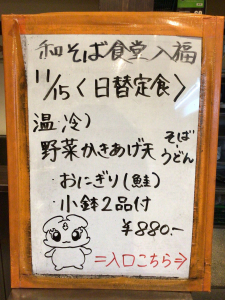 和そば食堂入福
11/15〈日替定食〉
温・冷）
野菜かきあげ天 そば・うどん
・おにぎり（鮭）
・小鉢2品付
¥880.-
=入口こちら⇒